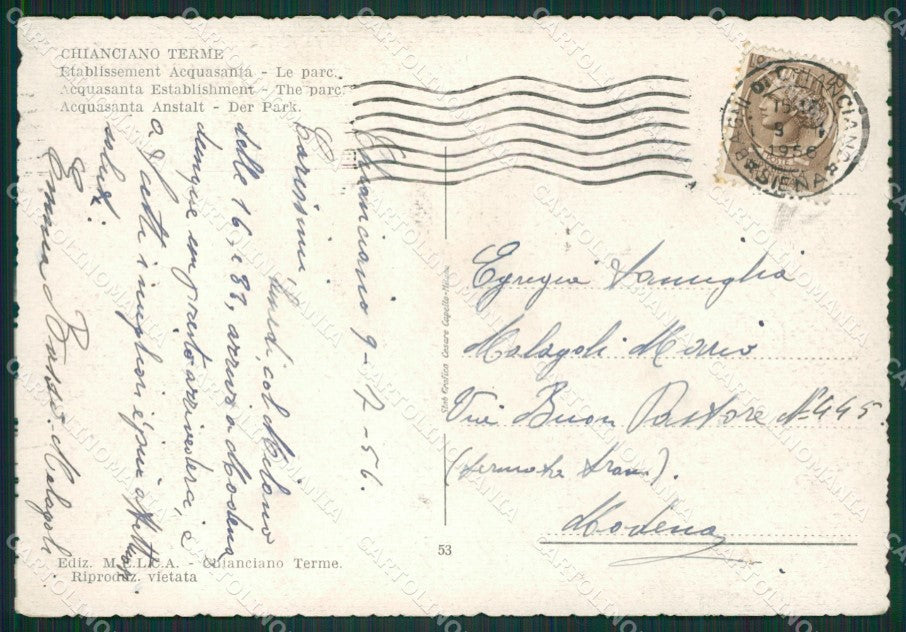 CHIANCIANO TERME
Etablissement Acquasanta - Le parc.
Acquasanta Establishment - The parc.
Acquasanta Anstalt - Der Park.
Chianciano 9-7-56.
Carissimi,
lunedì, col Milano
delle 16 e 38, arrivo a Modena
dunque un presto arrivederci,
a tutti i migliori e più affettuosi
saluti
Emma Malagoli
CHIANCIANO
SIENA
1956
Egregia Famiglia
Malagoli Mario
Via Buon Pastore N° 445
(fermata tram).
Modena
Stab. Grafico Cesare Capello - Milano
53
Ediz. M.E.L.C.A. - Chianciano Terme.
Riproduz. vietata
CARTOLINOMANIA